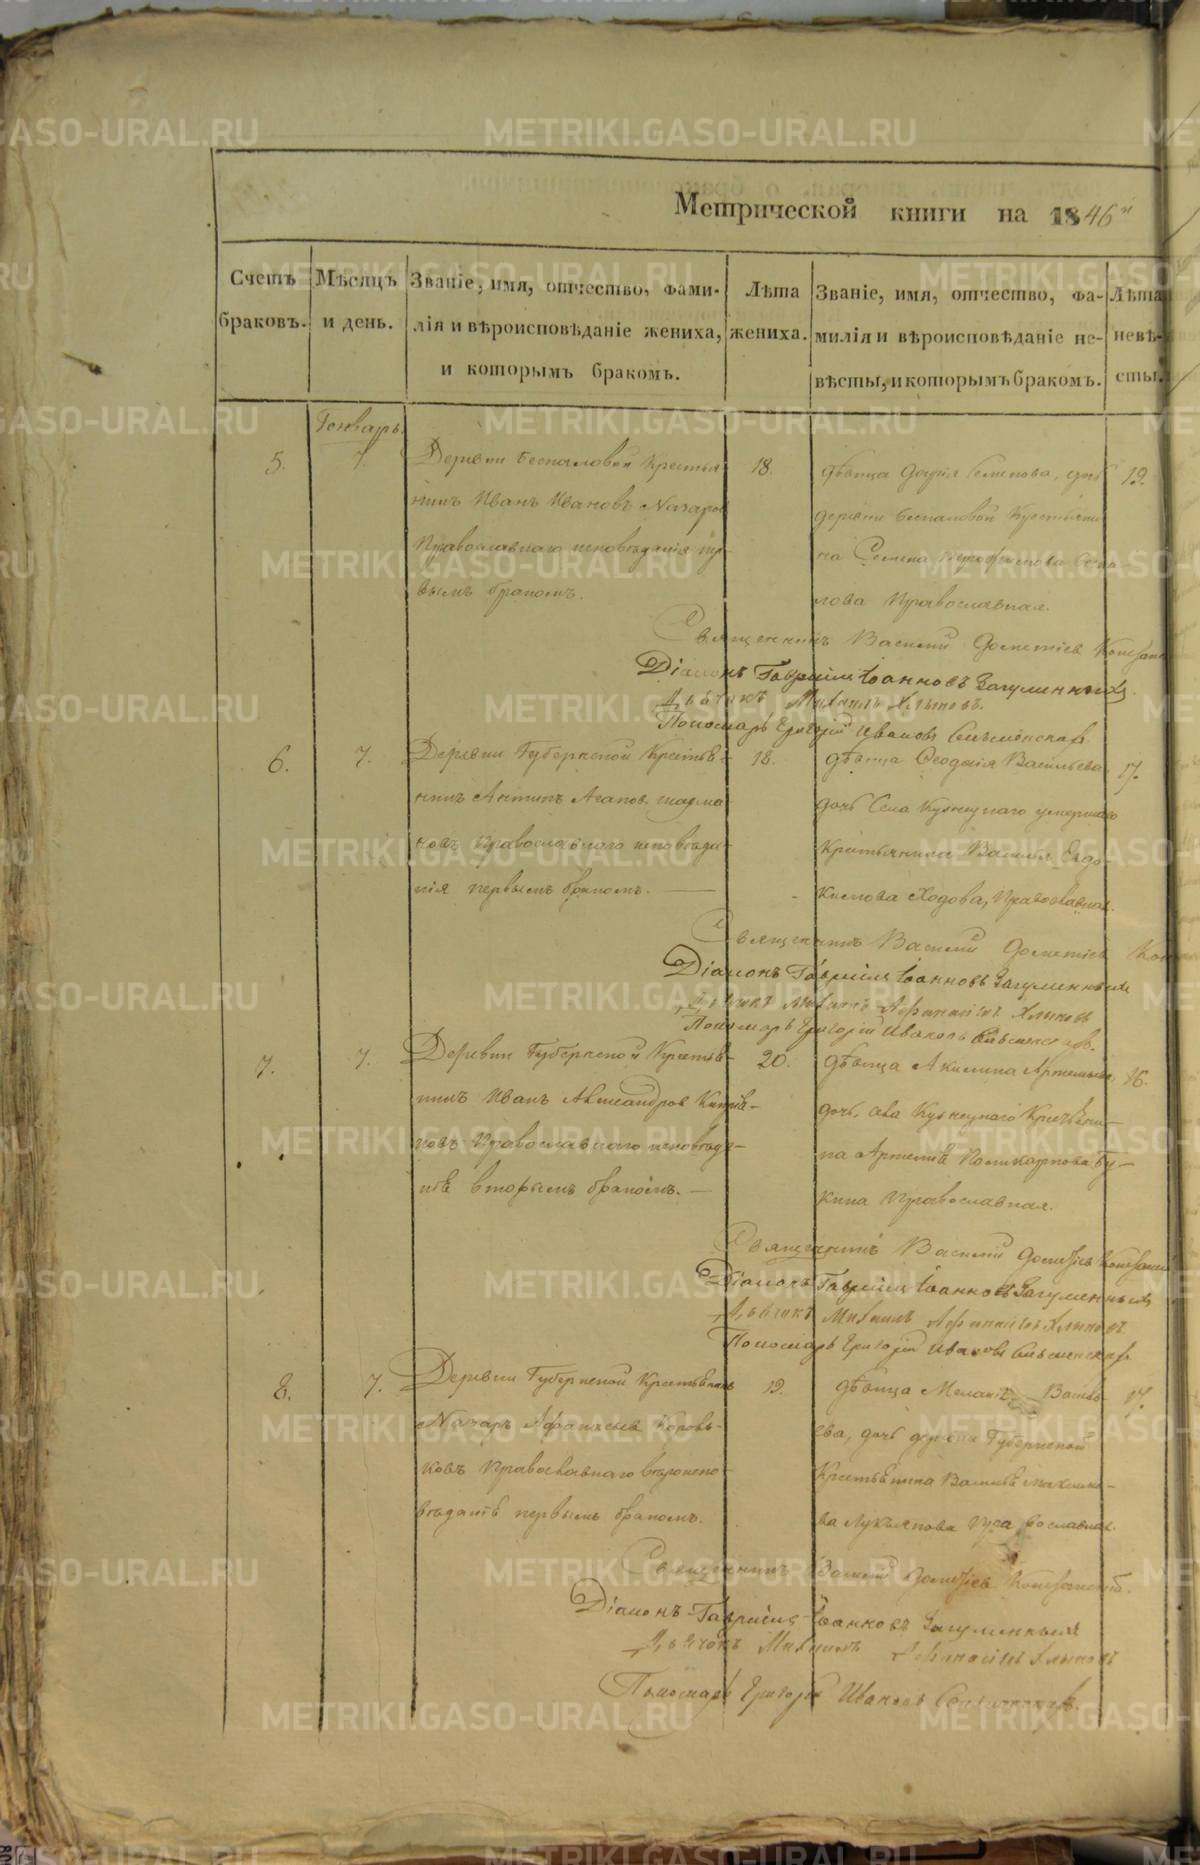 Метрической книги на 1846й
Счетъ браковъ.
Мѣсяцъ и день.
Званіе, имя, отчество, фами-
лія и вѣроисповѣданіе жениха,
и которымъ бракомъ.
Лѣта
жениха.
Званіе, имя, отчество, фа-
милія и вѣроисповѣданіе не-
вѣсты, и которымъ бракомъ.
Лѣта
невѣ-
сты.
Генварь
5.
7.
Деревни Беспаловой Крестья
нинъ Иванъ Ивановъ Назаров
Православнаго исповѣданія пер-
вымъ бракомъ.
18.
дѣвица Дарія Семенова, дочь
деревни Беспаловой Крестьяни
на Семена
лова Православная.
19.
Священникъ Василій Дометіев
Діаконъ Гавріилъ Іоанновъ Загуменныхъ
Дьячокъ Михаилъ Хлыновъ.
Пономарь Григорій Ивановъ
6.
7.
Деревни Губерской Крестья-
нинъ Антипъ Агапов
новъ Православнаго исповѣда-
нія первымъ бракомъ.
18.
дѣвица Ѳеодосія Васильева
дочь Села Кузнецкаго умершаго
Крестьянина Василья Евдо
кимова Ходова, Православная.
17.
Священникъ Василій Дометіев
Діаконъ Гавріилъ Іоанновъ Загуменныхъ
Дьячокъ Михаилъ Афанасіевъ Хлыновъ
Пономарь Григорій Ивановъ
7.
7.
Деревни Губерской Крестья-
нинъ Иванъ Александров Кипрія-
новъ Православнаго исповѣда-
ніе вторымъ бракомъ.
20.
дѣвица Акилина Артемьева,
дочь, села Кузнецкаго Крестьяни-
на Артемія Поликарпова Бу-
кина Православная.
16.
Священникъ Василій Дометіев
Діаконъ Гавріилъ Іоанновъ Загуменныхъ
Дьячокъ Михаилъ Афанасіевъ Хлыновъ
Пономарь Григорій Ивановъ
8.
7.
Деревни Губерской Крестьянинъ
Назаръ Афанасьев Коровь-
ковъ Православнаго вѣроиспо-
вѣданіе первымъ бракомъ.
19.
дѣвица Меланія Василь-
ева, дочь деревни Губерской
Крестьянина Василья
ва Лукьянова Православная.
17.
Священникъ Василій Дометіев
Діаконъ Гавріилъ Іоанновъ Загуменныхъ
Дьячокъ Михаилъ Афанасіевъ Хлыновъ
Пономарь Григорій Ивановъ
METRIKI.GASO-URAL.RU